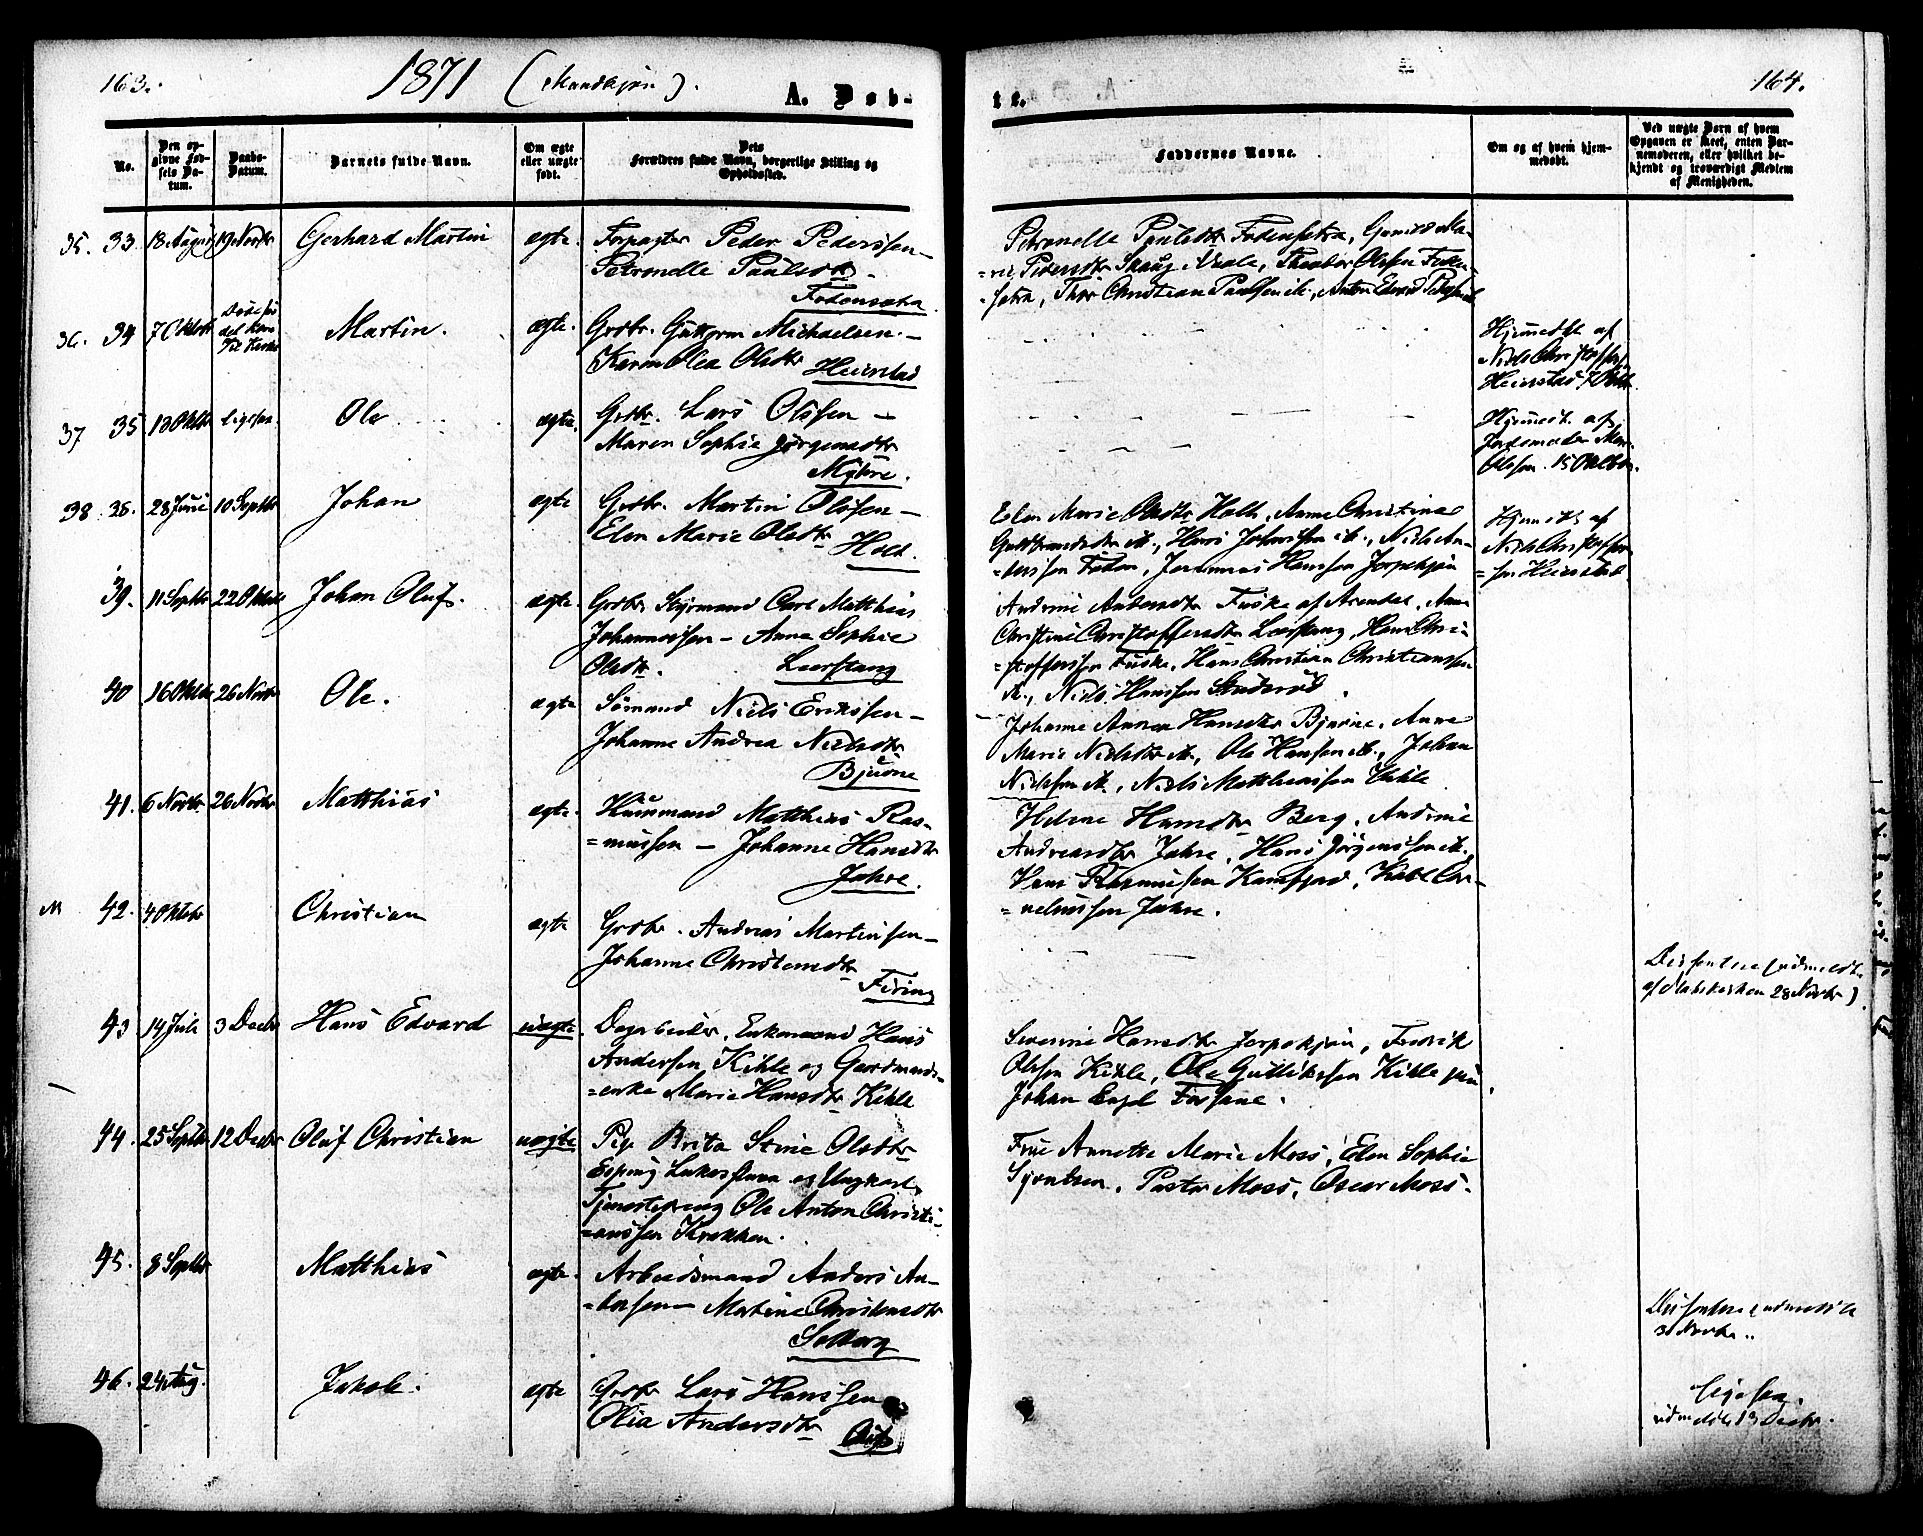 163.
1871 (Mandkjøn).
A. Døb-
No.
Den op-
givne Fød-
sels Da-
tum.
Daabs-
Datum.
Barnets fulde Navn.
Om ægte
eller uægte
født.
Dets
Forældres fulde Navn, borgerlige Stilling og
Opholdssted.
35. 33. 18 August 19 Novbr Gerhard Martin ægte. Forpagter Peder Pederssen –
Petronelle Paulsdtr –
Fodensætra
36. 34 7 Oktbr
Martin. ægte. Grdbr. Guttorm Michaelsen. –
Karen Olea Olsdtr Heierstad
37 35 13 Oktbr Ligesaa. Ole ægte. Grdbr. Lars Olssen –
Maren Sophie Jørgensdtr
Myhre.
38. 36. 28 Juni 10 Septbr Johan ægte Grdbr. Martin Olssen –
Elen Marie Olsdtr Holt.
39. 11 Septbr 22 Oktbr Johan Oluf. ægte. Grdbr Styrmand Carl Matthias
Johannessen – Anne Sophie
Olsdtr. Leerstang
40 16 Oktbr 26 Novbr Ole. ægte Sømand Niels Erikssen –
Johanne Andrea Nielsdtr
Bjuone
41. 6 Novbr. 26 Novbr Matthias ægte. Huusmand Matthias Ras-
=mussen – Johanne Hansdtr
Jahre.
M 42. 4 Oktobr Christian ægte Grdbr. Andreas Martinsen –
Johanne Christensdtr
43 14 Juli 3 Decbr Hans Edvard uægte. Dagarbeider, Enkemand Hans
Andersen Kihle og Gaardmands-
=enke Marie Hansdtr Kihle
44. 25 Septbr 12 Decbr Oluf Christian uægte Pige Brita Stine Olsdtr
og Ungkarl,
Ole Anton Christi-
=anssen Krokken.
45. 8 Septbr Matthias ægte. Arbeidsmand Anders An-
=dersen – Martine Christensdtr
Solberg
46. 24 Aug. Jakob. ægte Grdbr Lars Hanssen
Olia Andersdtr
164.
te.
Faddernes Navne.
Om og af hvem hjem-
medøbt.
Ved uægte Børn af hvem
Opgaven er skeet, enten Bar-
nemoderen, eller hvilket be-
kjendt og troværdigt Medlem
af Menigheden.
Petronelle Paulsdtr Fodensetra, Gunild Ma-
=rie Pedersdtr Skaug, Theodor Olssen Foden-
=setra, Thor Christian Paulsen ib., Anton Edvard
Hjemedbt af
Niels Christoffers.
Heierstad 7 Oktbr.
Hjemedt. af
Jordemoder
Olssen. 15 Oktbr.
Elen Marie Olsdtr Holt, Anne Christine
Guttormsdtr ib., Hans Johanssen ib., Niels An-
=derssen Foden, Johannes Hanssen Jerpekjøn
Hjemdt af
Niels Christoffer-
=sen Heierstad
Andrine Andersdtr Fuske af Arendal, Anne
Christine Christoffersdtr Leerstang, Hans Chri-
=stofferssen Fuske, Hans Christian Christianssen
ib., Niels Hanssen
Johanne Annea Hansdtr Bjuone, Anne
Marie Nielsdtr ib., Ole Hanssen ib., Johan
Nilssen ib., Niels Matthiassen Kihle
Helene Hansdtr Berg, Andrine
Andreasdtr Jahre, Hans Jørgenssen ib.
Hans Rasmussen, Kabel Cor-
=neliussen Jahre.
Dissentere (udmeldt
af Statskirken 28 Novbr)
Severine Hansdtr Jerpekjøn, Fredrik
Olssen Kihle, Ole Gulliksen Kihle
Johan Engel
Frue Annette Marie Moss, Elen Sophie
Syvertsen, Pastor Moss, Oscar Moss.
Dissentere udmeldte
Ligesaa.
udmeldte 13 Decbr.